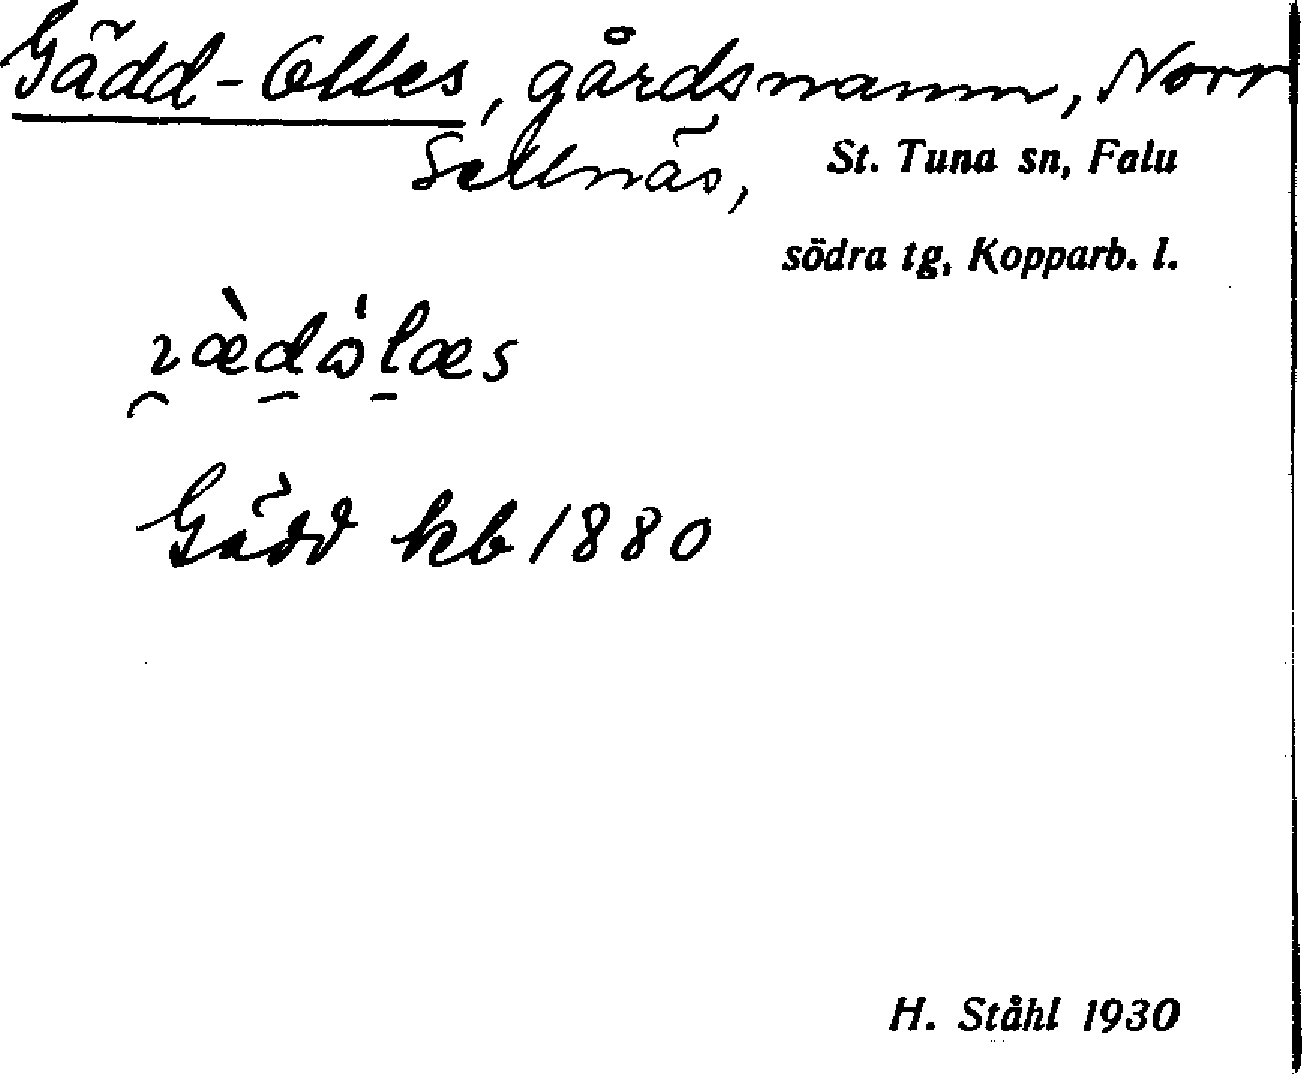 Gädd-Olles, gårdsnamn, Norr
Sellnäs, St. Tuna sn, Falu
södra tg, Kopparb. l.
Gädd kb 1880
H. Ståhl 1930